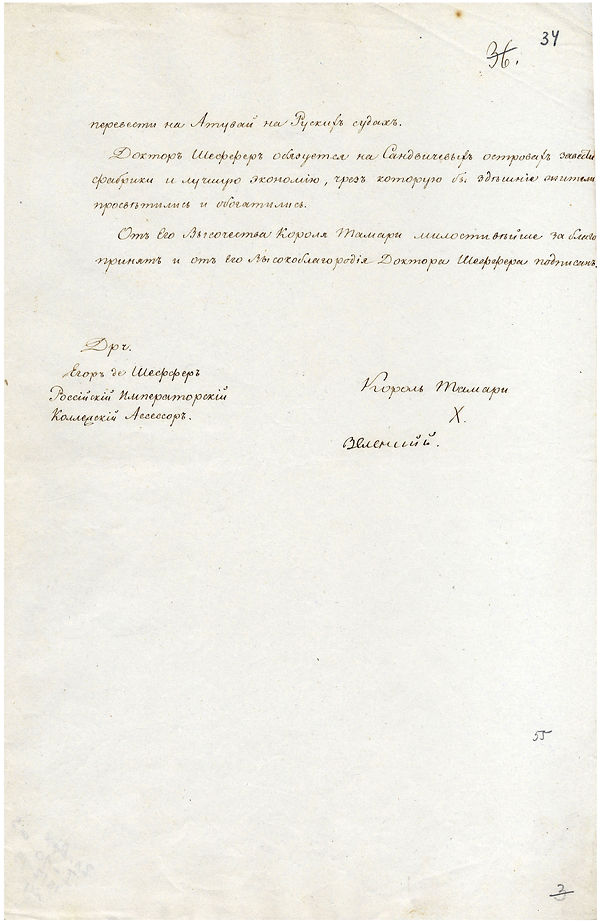 34
36.
перевести на Атувай на Рускихъ судахъ.
Докторъ Шеффферъ обязуется на Сандвичевыхъ островахъ завѣсти
фабрики и лучшую экономію, чрезъ которую бъ здѣшніе жители
просвѣтились и обогатились.
Отъ Его Высочества Короля Тамари милостивѣйше за благо
принятъ и отъ его Высокоблагородія Доктора Шеффера подписанъ.
Дрч.
Егоръ де Шеффферъ
Россійскій Императорскій
Коллежскій Ассесоръ.
Король Тамари
X.
55